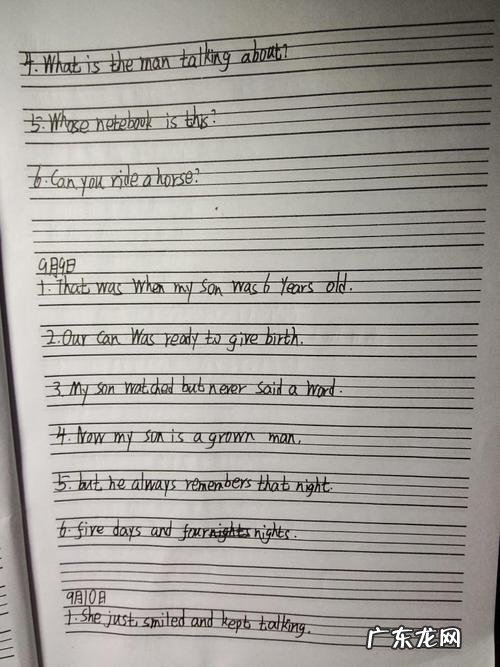 4. What is the man talking about?
5. Whose notebook is this?
6. Can you ride a horse?
9月9日
1. That was when my son was 6 years old.
2. Our can was ready to give birth.
3. My son watched but never said a word.
4. Now my son is a grown man.
5. but he always remembers that night.
6. five days and four nights nights.
9月10日
1. She just smiled and kept talking.
广东龙网